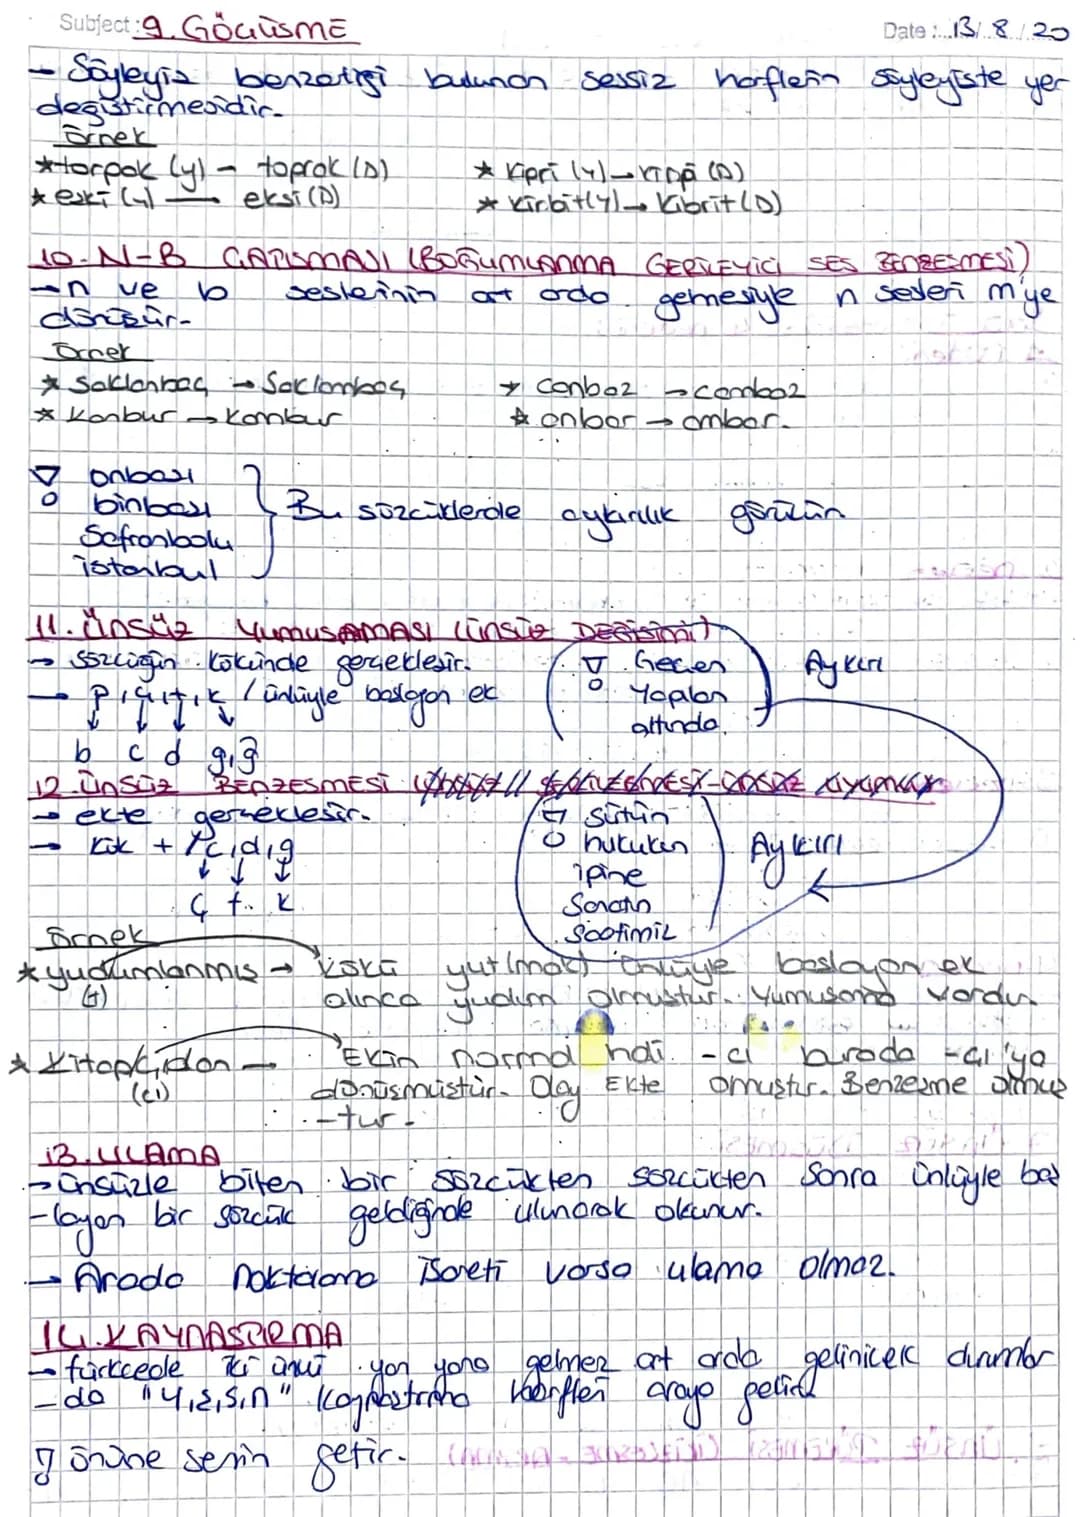 Subject: 9. GÖÇÜŞME Date: 13/8/20
- Söyleyiş benzerliği bulunan sessiz harflerin söyleyişte yer
değiştirmesidir.
Örnek
* torpak (y) - toprak (D) * kipri (y) → kirpi (D)
* eski (y) — ekşi (D) * kirbit (y) → kibrit (D)
10. N-B ÇATIŞMASI (BOĞUMLANMA GERİLEYİCİ SES BENZEŞMESİ)
→ n ve b seslerinin art arda gelmesiyle n sesleri m'ye
dönüşür.
Örnek
* Saklanbaç → Saklambaç * canbaz → cambaz
* Kanbur → Kambur * anbar → ambar.
onbaşı
binbaşı Bu sözcüklerde aykırılık görülür
Safranbolu
istanbul
11. ÜNSÜZ YUMUŞAMASI (ÜNSÜZ DEĞİŞİMİ)
→ sözcüğün kökünde gerçekleşir. Geçen Aykırı
→ p, ç, t, k / ünlüyle başlayan ek Yapılan
altında.
b c d g,ğ
12. ÜNSÜZ BENZEŞMESİ
→ ekte gerçekleşir. Sütün
→ Kök + c, d, g hukukun Aykırı
ipine
ç t k Sanatın
Saatimiz
Örnek
* yudumlanmış → kökü yut(mak) ünlüye başlayan ek
(t) alınca yudum olmuştur. Yumuşama vardır.
* Kitapçıdan — Ekin normal hali -cı burada -çı'ya
(cı) dönüşmüştür. Olay Ekte omuştur. Benzeşme olmuş
-tur.
13. ULAMA
→ ünsüzle biten bir sözcükten sözcükten sonra ünlüyle baş
-layan bir sözcük geldiğinde ulunarak okunur.
→ Arada noktalama işareti varsa ulama olmaz.
14. KAYNAŞTIRMA
→ türkçede iki ünlü yan yana gelmez art arda gelinicek durumlar
-da "y,ş,s,n" kaynaştırma harfleri araya gelir
önüne senin getir.